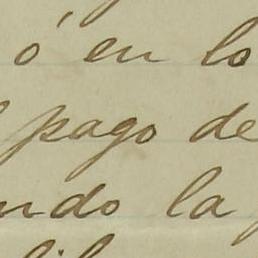 ó en lo
pago de
ndo la